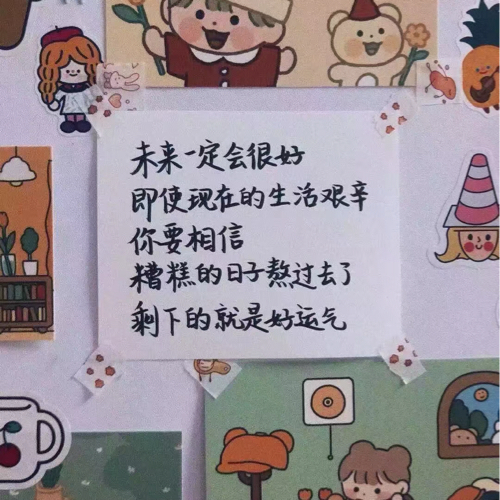 未来一定会很好
即使现在的生活艰辛
你要相信
糟糕的日子熬过去了
剩下的就是好运气